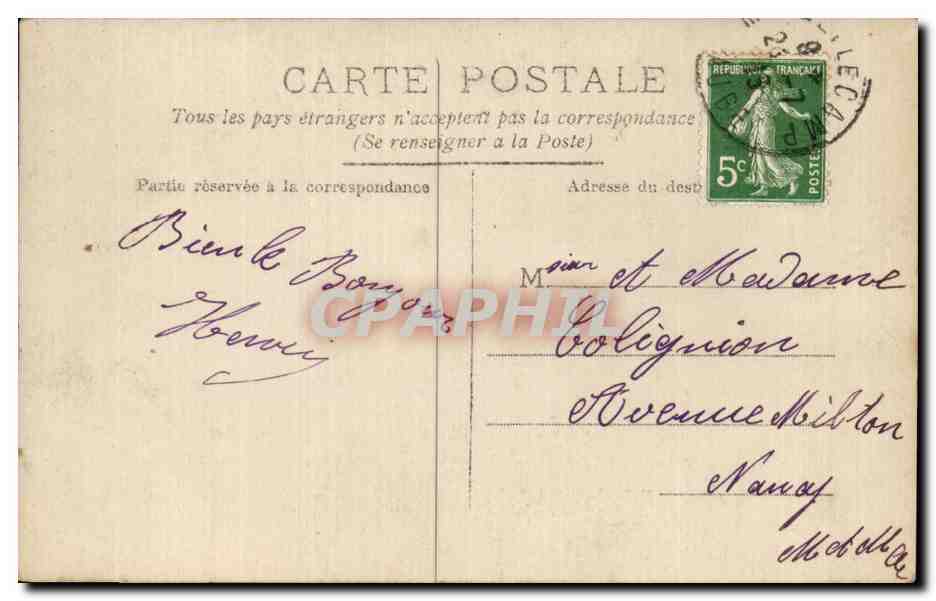 CARTE POSTALE
Tous les pays étrangers n'acceptent pas la correspondance
(Se renseigner a la Poste)
Partie réservée à la correspondance
Adresse du dest
REPUBLIQUE FRANÇAISE
5c
POSTES
LECAMP
Bien le
Bonjour
Monsieur et Madame
Colignion
Avenue Milton
Nancy
M et Me
CPAPHIL